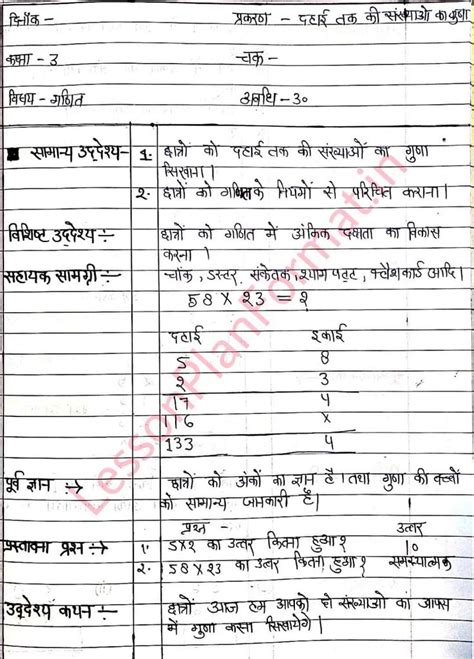 दिनाँक - प्रकरण - दहाई तक की संख्याओं का गुणा
कक्षा - 3 चक्र -
विषय - गणित अवधि - 30
सामान्य उद्देश्य - 1. छात्रों को दहाई तक की संख्याओं का गुणा
सिखाना।
२. छात्रों को गणित के नियमों से परिचित कराना।
विशिष्ट उद्देश्य :- छात्रों को गणित में आंकिक दक्षता का विकास
करना।
सहायक सामग्री :- चॉक, डस्टर, संकेतक, श्याम पट्ट, फ्लैशकार्ड आदि।
58 x 23 = ?
दहाई इकाई
5 8
2 3
17 4
116 x
133 4
पूर्व ज्ञान :→ छात्रों को अंकों का ज्ञान है। तथा गुणा की बच्चों
को सामान्य जानकारी है।
प्रश्न - उत्तर
प्रस्तावना प्रश्न :→ १. 5x2 का उत्तर कितना हुआ? 10
२. 58 x 23 का उत्तर कितना हुआ? समस्यात्मक
उद्देश्य कथन :- छात्रों आज हम आपको दो संख्याओं का आपस
में गुणा करना सिखायेंगे।
LessonPlanFormat.in